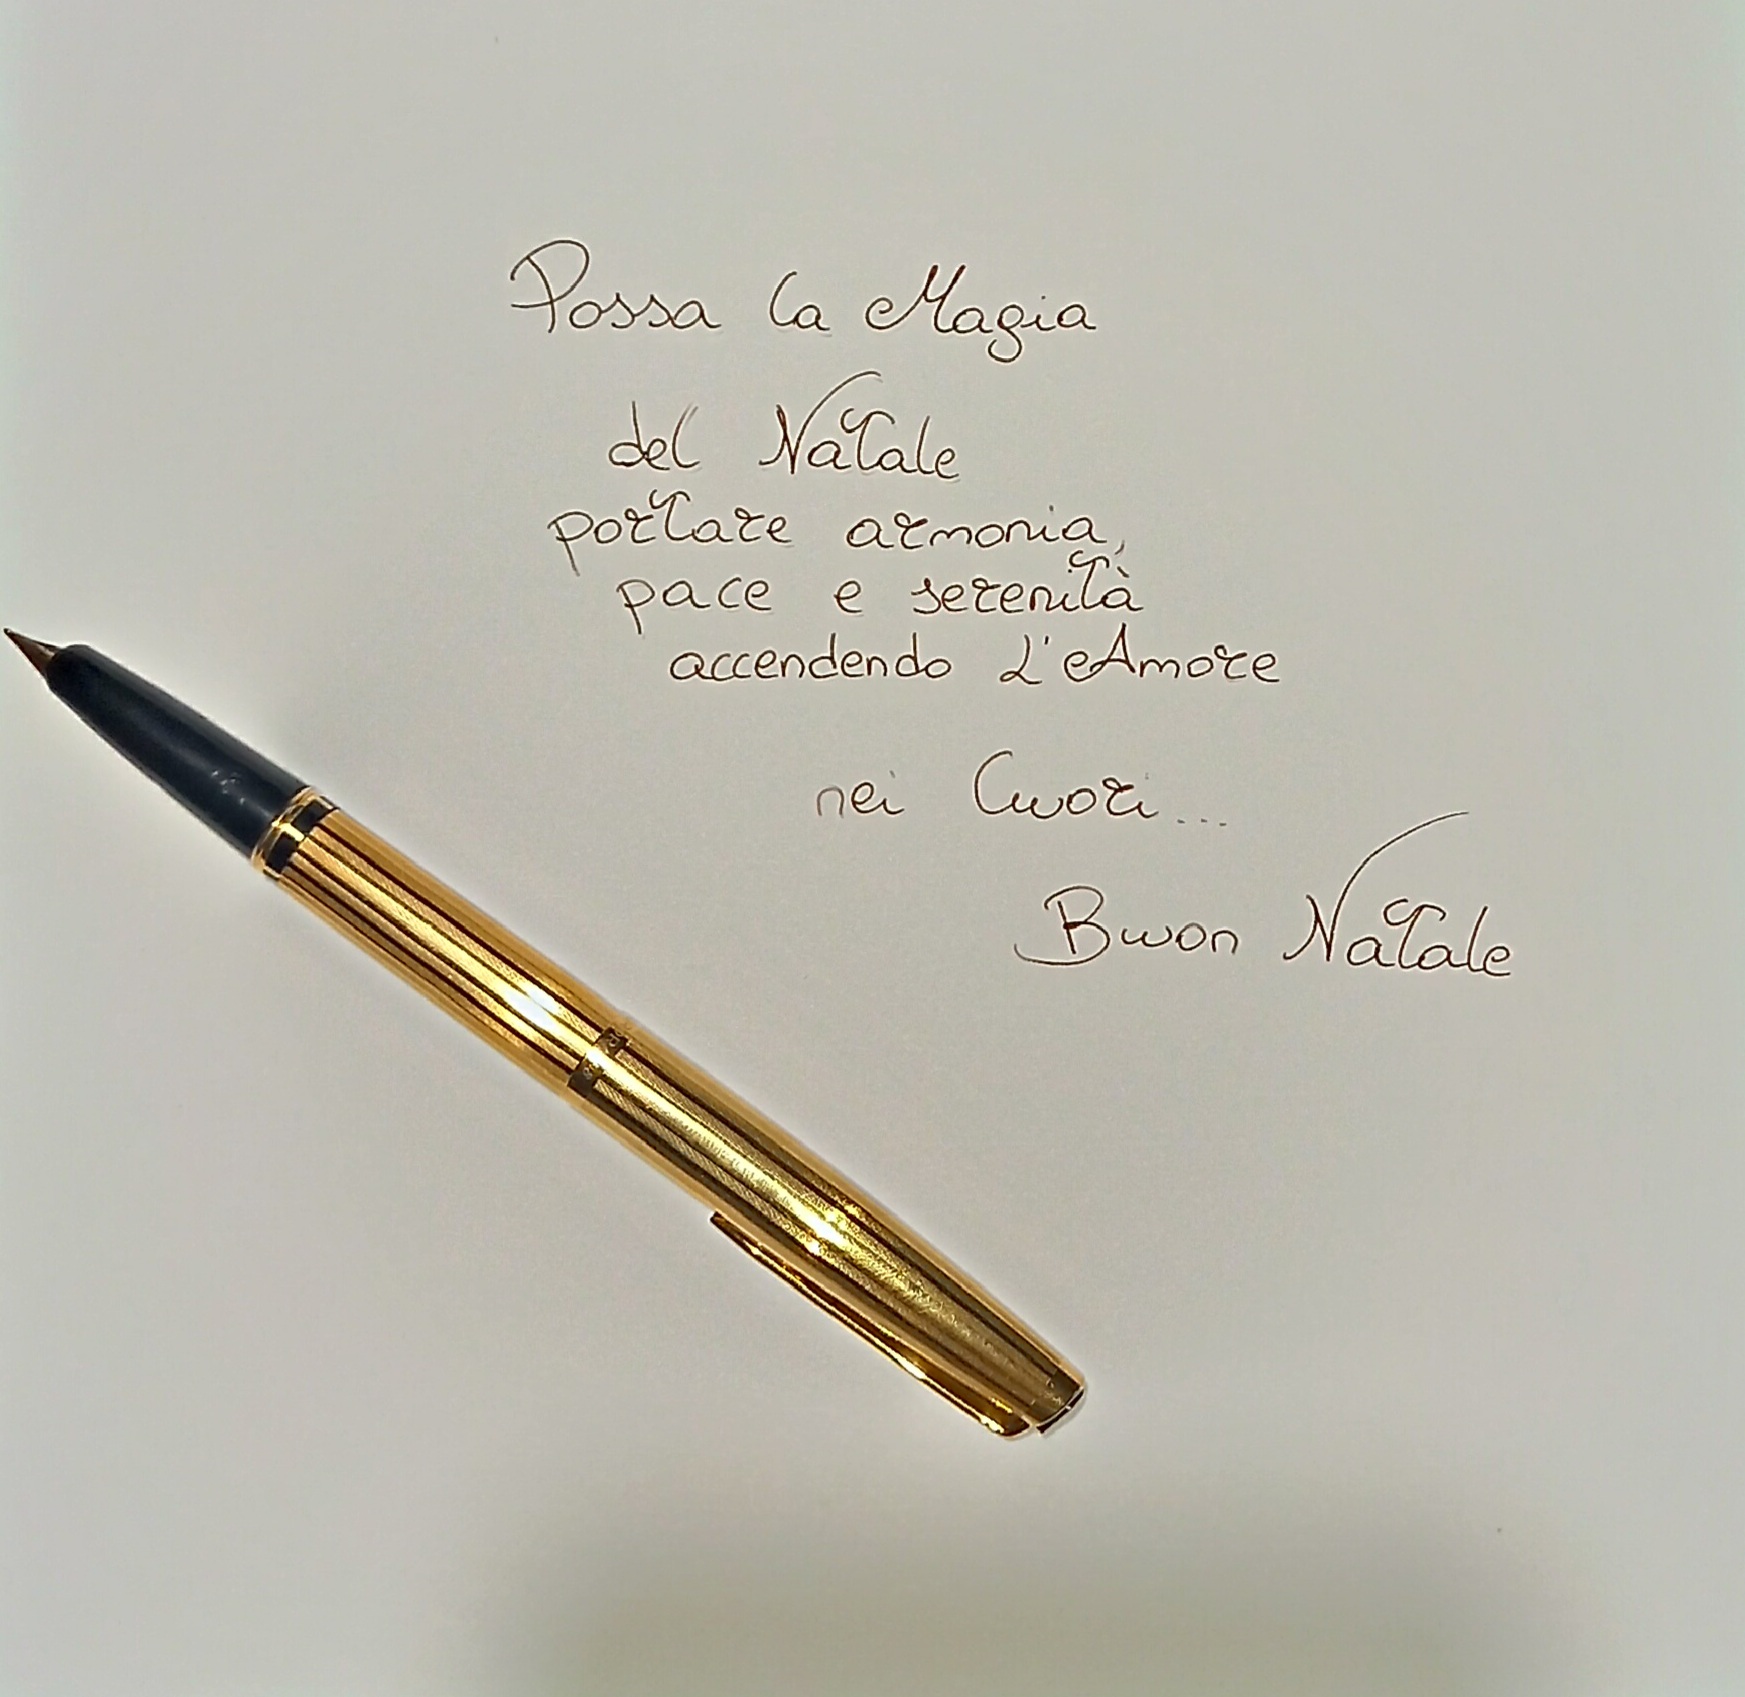 Possa la Magia
del Natale
portare armonia,
pace e serenità
accendendo L'Amore
nei Cuori...
Buon Natale